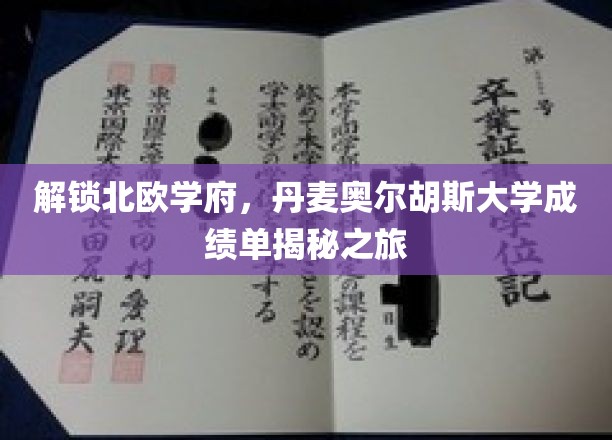 解锁北欧学府，丹麦奥尔胡斯大学成
绩单揭秘之旅
第
号
卒業証
学位記
本学商学部
定の課程を
修めて本学
ことを認め
学士(商学)の学位
する
日生
平成
東京国際大学
東京国際大学
田尻嗣夫